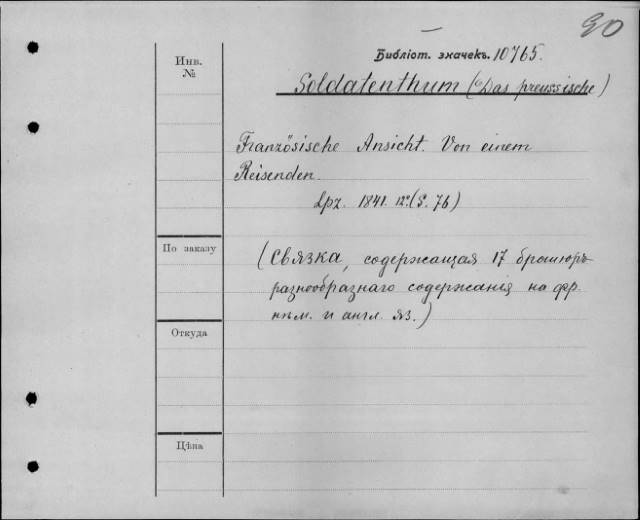 90
Библіот. значекъ. 10765.
Инв.
№
Soldatenthum (Das preussische)
Französische Ansicht. Von einem
Reisenden.
Lpz. 1841. 12º (S. 76)
По заказу
(Связка, содержащая 17 брошюръ
разнообразнаго содержанія на фр.
нѣм. и англ. яз.)
Откуда
Цѣна